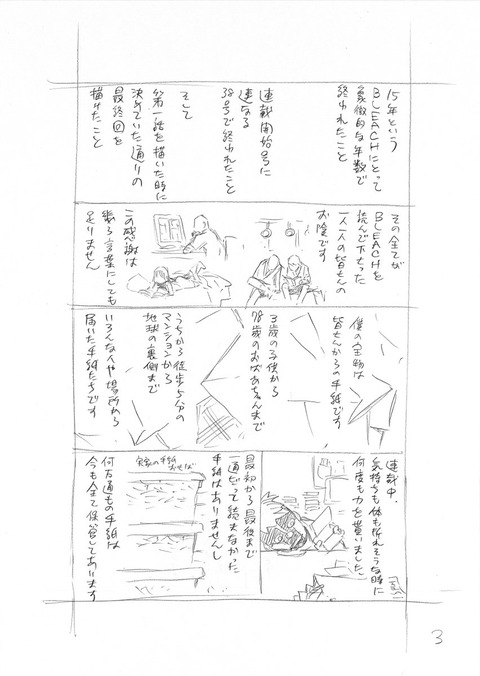 15年という
BLEACHにとって
象徴的な年数で
終われたこと
連載開始号に
連なる
38号で終われたこと
そして
第一話を描いた時に
決めていた通りの
最終回を
描けたこと
その全てが
BLEACHを
読んで下さった
一人一人の皆さんの
お陰です
この感謝は
幾ら言葉にしても
足りません
僕の宝物は
皆さんからの手紙です
3歳の子供から
78歳のおばあちゃんまで
うちから徒歩5分の
マンションから
地球の裏側まで
いろんな人や場所から
届いた手紙たちです
連載中、
気持ちも体も折れそうな時に
何度も力を貰いました
最初から最後まで
一通だって読まなかった
手紙はありませんし
何万通もの手紙は
今も全て保管してあります
3